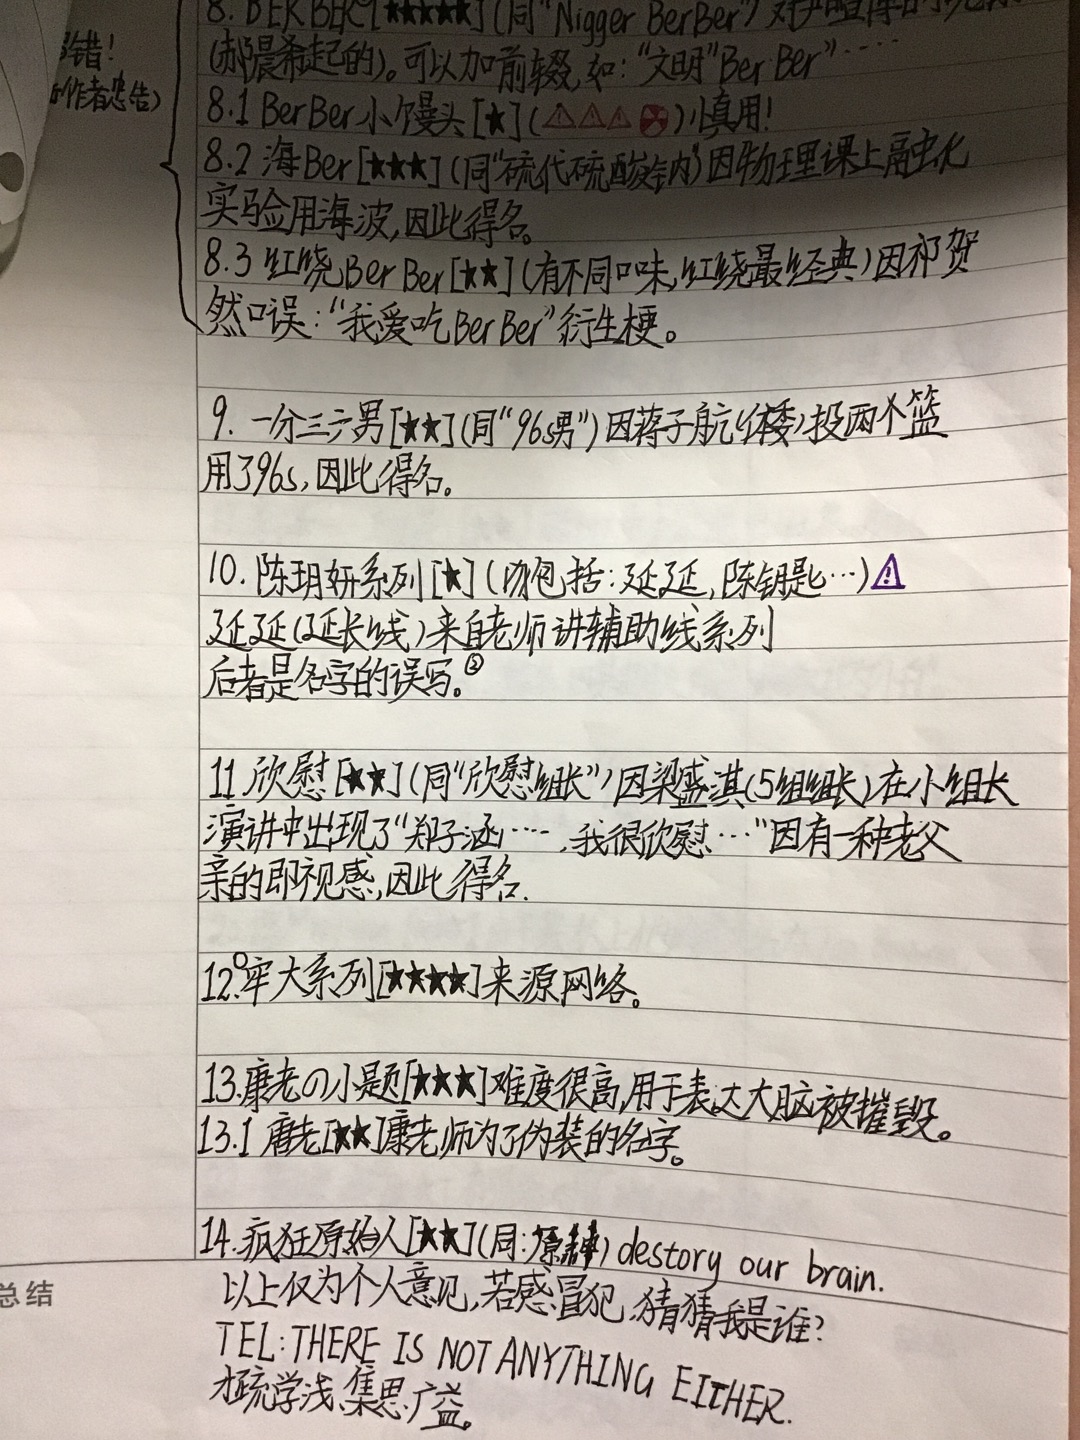 8. BERBER[★★★★★](同“Nigger BerBer”)
(郝晨希起的)。可以加前缀,如:“文明”BerBer”……
错!
作者忠告)
8.1 BerBer小馒头[★](⚠⚠⚠☢)慎用!
8.2 海Ber[★★★](同“硫代硫酸钠”)因物理课上融化
实验用海波,因此得名。
8.3 红烧BerBer[★★](有不同口味,红烧最经典)因祁贺
然口误:“我爱吃BerBer”衍生梗。
9. 一分三六男[★★](同“96s男”)因蒋子航(体委)投两个篮
用了96s,因此得名。
10. 陈玥妍系列[★](包括:延延,陈钥匙…)⚠
延延(延长线)来自老师讲辅助线系列
后者是名字的误写。②
11 欣慰[★★](同“欣慰组长”)因梁盛淇(5组组长)在小组长
演讲中出现了“郑子涵……,我很欣慰…”因有一种老父
亲的即视感,因此得名.
12.牢大系列[★★★★]来源网络。
13.康老の小题[★★★]难度很高,用于表达大脑被摧毁。
13.1 唐老[★★]康老师为了伪装的名字。
14.疯狂原始人[★★](同:原神) destory our brain.
总结
以上仅为个人意见,若感冒犯,猜猜我是谁?
TEL:THERE IS NOT ANYTHING EITHER.
才疏学浅,集思广益。